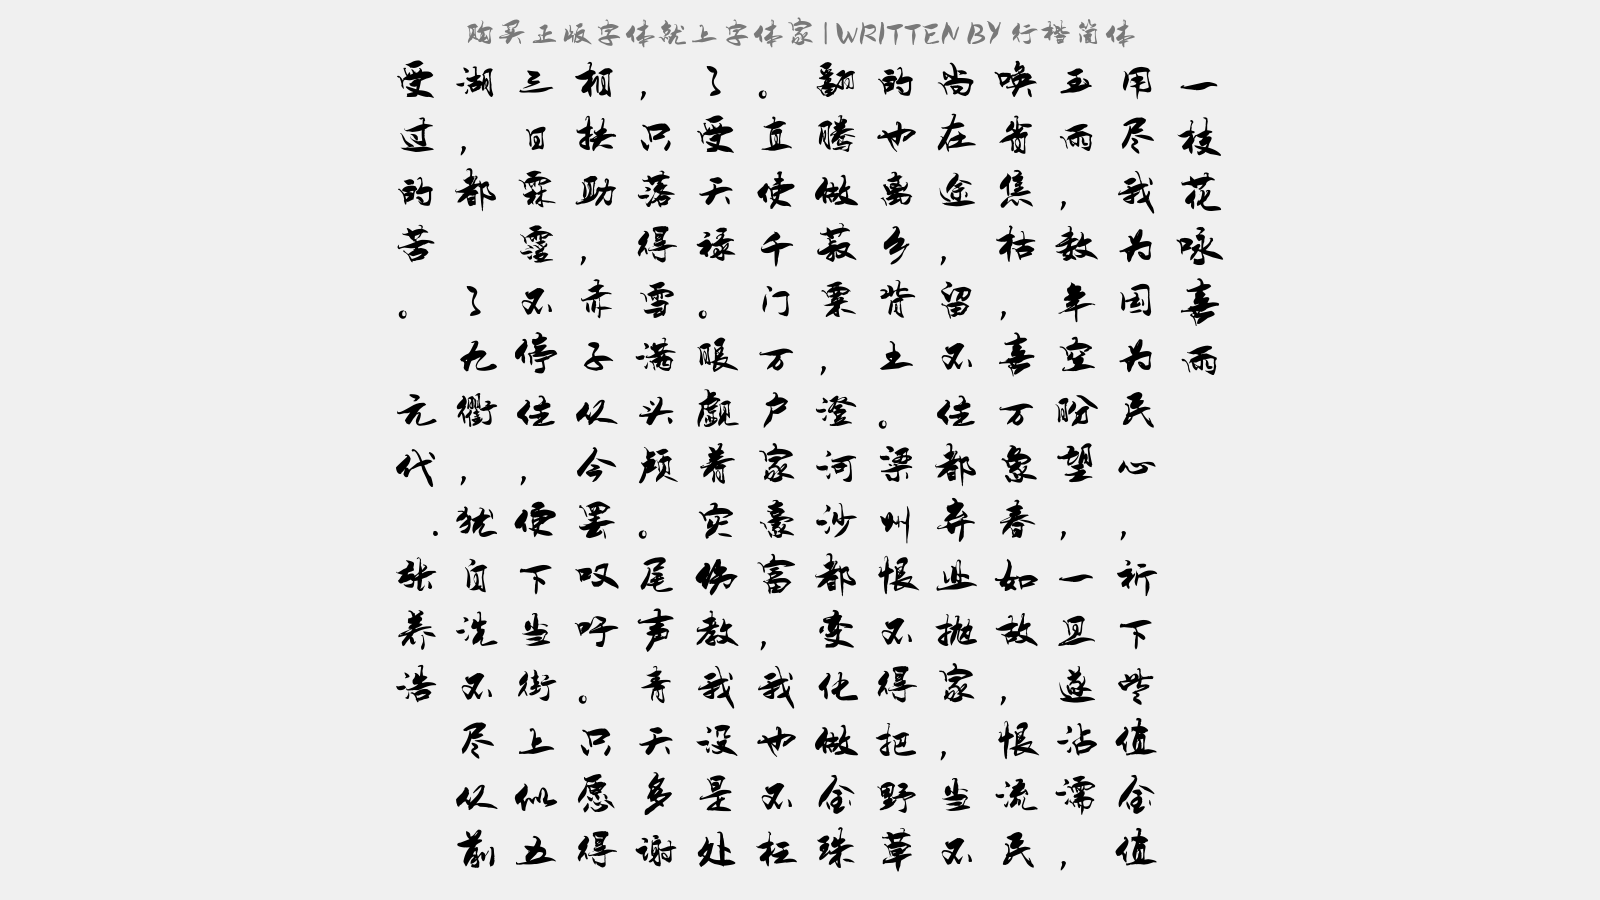 购买正版字体就上字体家|WRITTEN BY 行楷简体
一枝花咏喜雨
用尽我为国为民心，祈下些值金值
玉雨，数年空盼望，一旦遂沾濡，
唤省焦枯，喜万象春如故，恨流民
尚在途，留不住都弃业抛家，当不
的也离乡背土。梁州恨不得把野草
翻腾做菽粟，澄河沙都变化做金珠
。直使千门万户家豪富，我也不枉
了受天禄。眼觑着灾伤教我没是处
，只落得雪满头颅。尾声青天多谢
相扶助，赤子从今罢叹吁。只愿得
三日霖霪不停住，便下当街上似五
湖，都 了九衢，犹自洗不尽从前
受过的苦。 元代 .张养浩